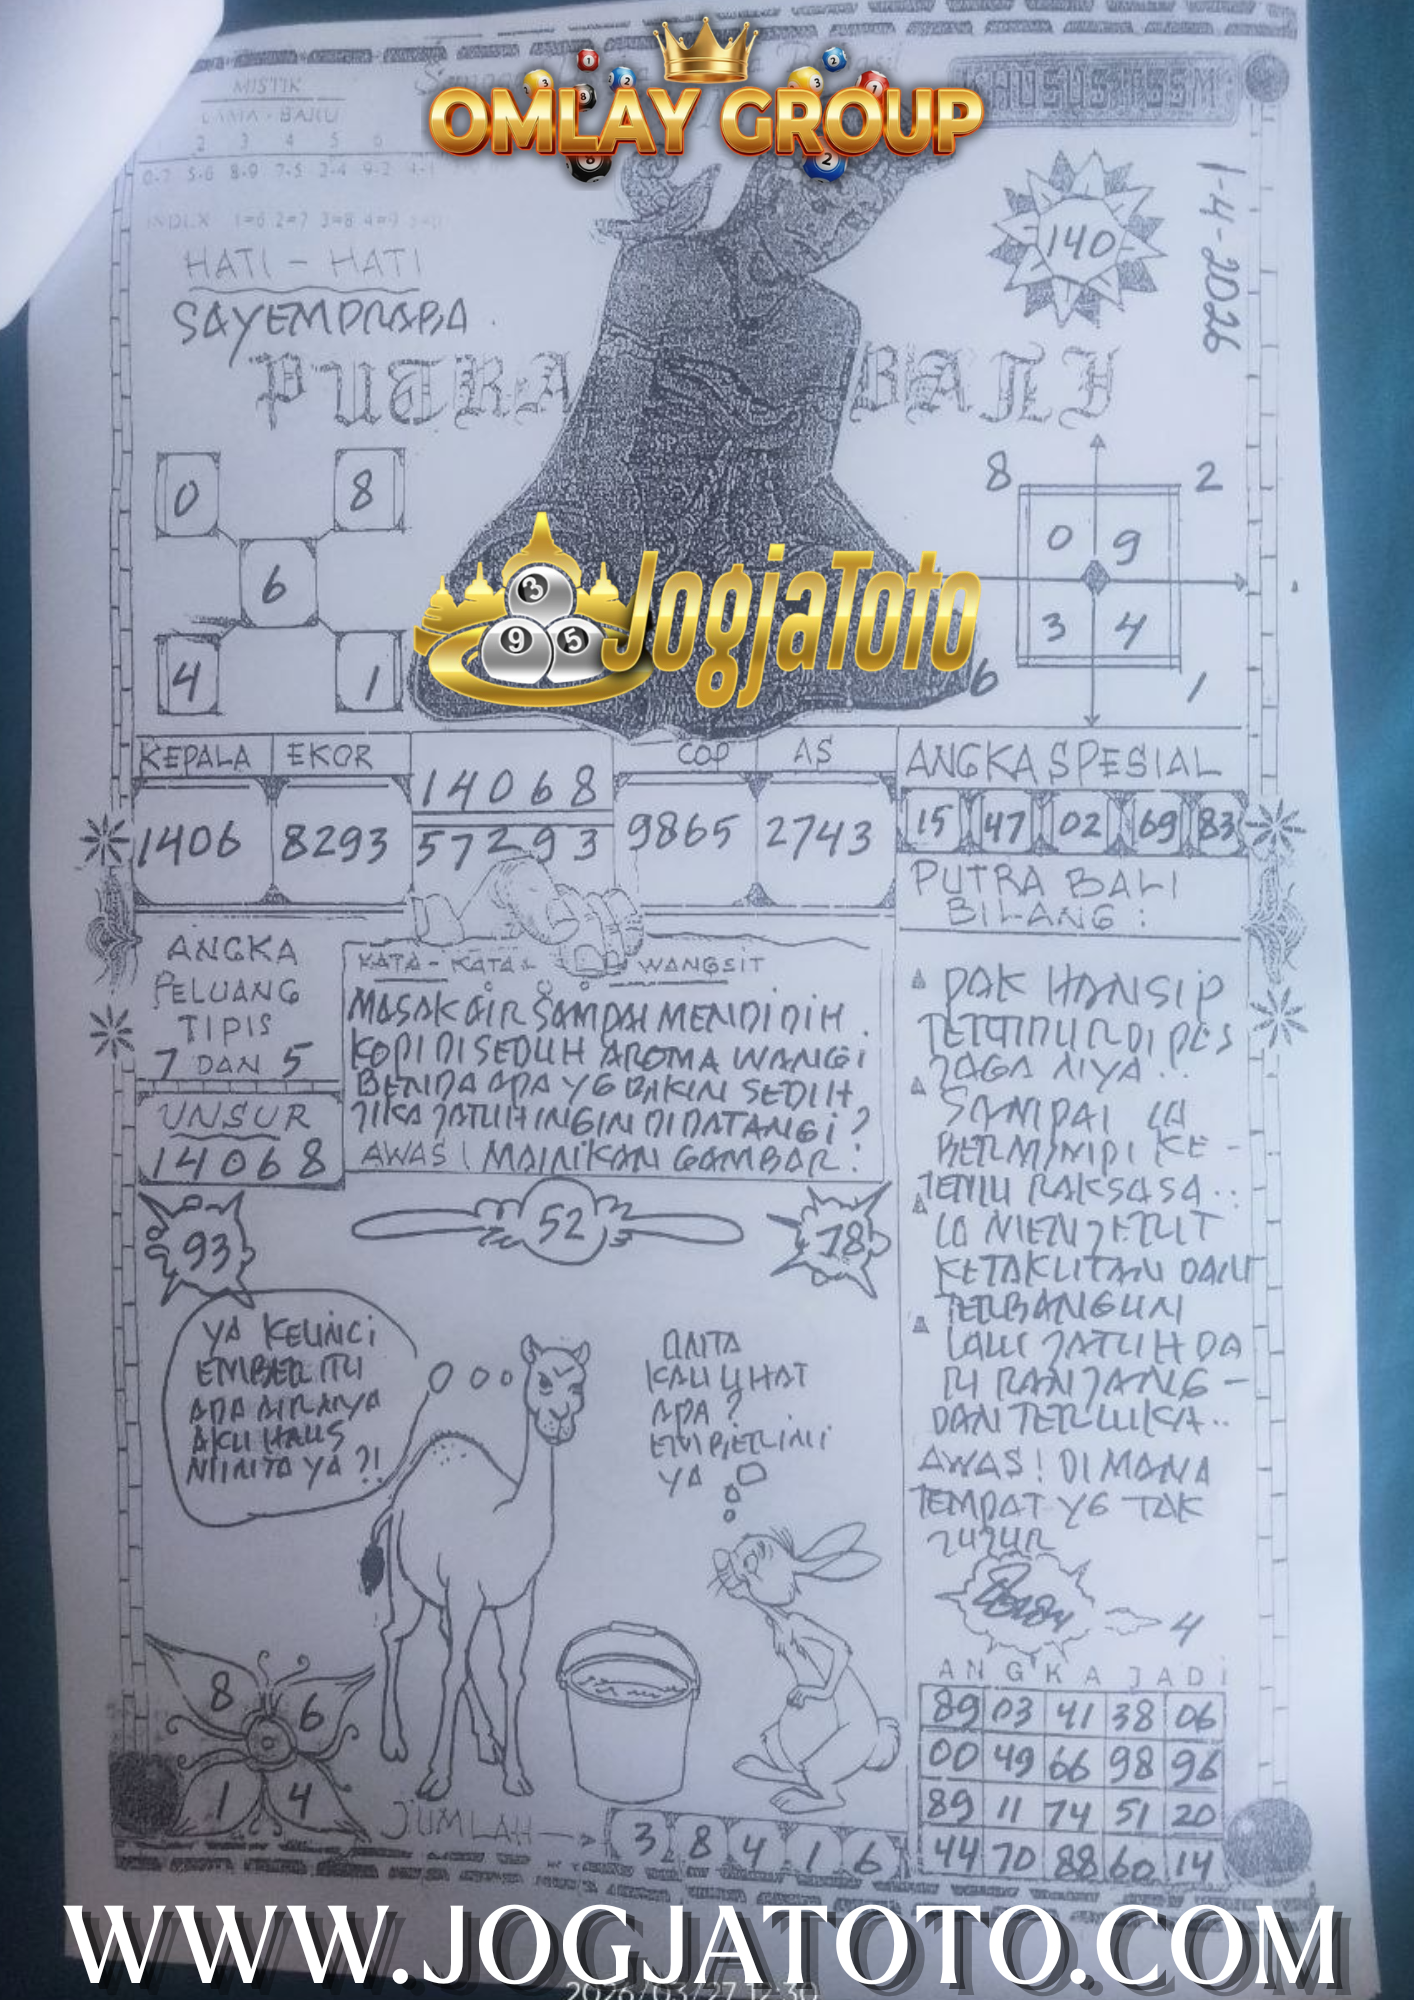 OMLAY GROUP
MISTIK
LAMA - BARU
2 3 4 5 6
0-7 5-6 8-9 7-5 2-4 9-2 4-1
INDEX 1=6 2=7 3=8 4=9 5=0
140
1-4-2026
HATI - HATI
SAYEMPRABA
PUTRA BALI
0 8
6
4 1
8 2
0 9
3 4
6 1
3
9 5
JogjaToto
KEPALA EKOR
14068
COP AS
ANGKA SPESIAL
1406 8293 57293 9865 2743
15 47 02 69 83
PUTRA BALI
BILANG :
ANGKA
PELUANG
TIPIS
7 DAN 5
UNSUR
14068
KATA - KATA WANGSIT
MASAK AIR SAMPAI MENDIDIH .
KOPI DISEDUH AROMA WANGI
BENDA APA YG BIKIN SEDIH
JIKA JATUH INGIN DIDATANGI ?
AWAS ! MAINIKAN GAMBAR :
PAK HANSIP
TERTIDUR DI POS
JAGA NIYA ..
SAMPAI IA
BERMIMPI KE -
TEMU RAKSASA ..
IA MENJERIT
KETAKUTAN DAN
TERBANGUN
LALU JATUH DA
RI RANJANG -
DAN TERLUKA ..
AWAS ! DI MANA
TEMPAT YG TAK
JUJUR
4
93
52
78
YA KELINCI
EMBER ITU
ADA AIRNYA
AKU HAUS
MINTA YA ?!
UNTA
KAU LIHAT
APA ?
EMBER INI
YA
8 6
1 4
JUMLAH
3 8 4 1 6
ANGKA JADI
89 03 41 38 06
00 49 66 98 96
89 11 74 51 20
44 70 88 60 14
WWW.JOGJATOTO.COM
2026/03/27 12:30